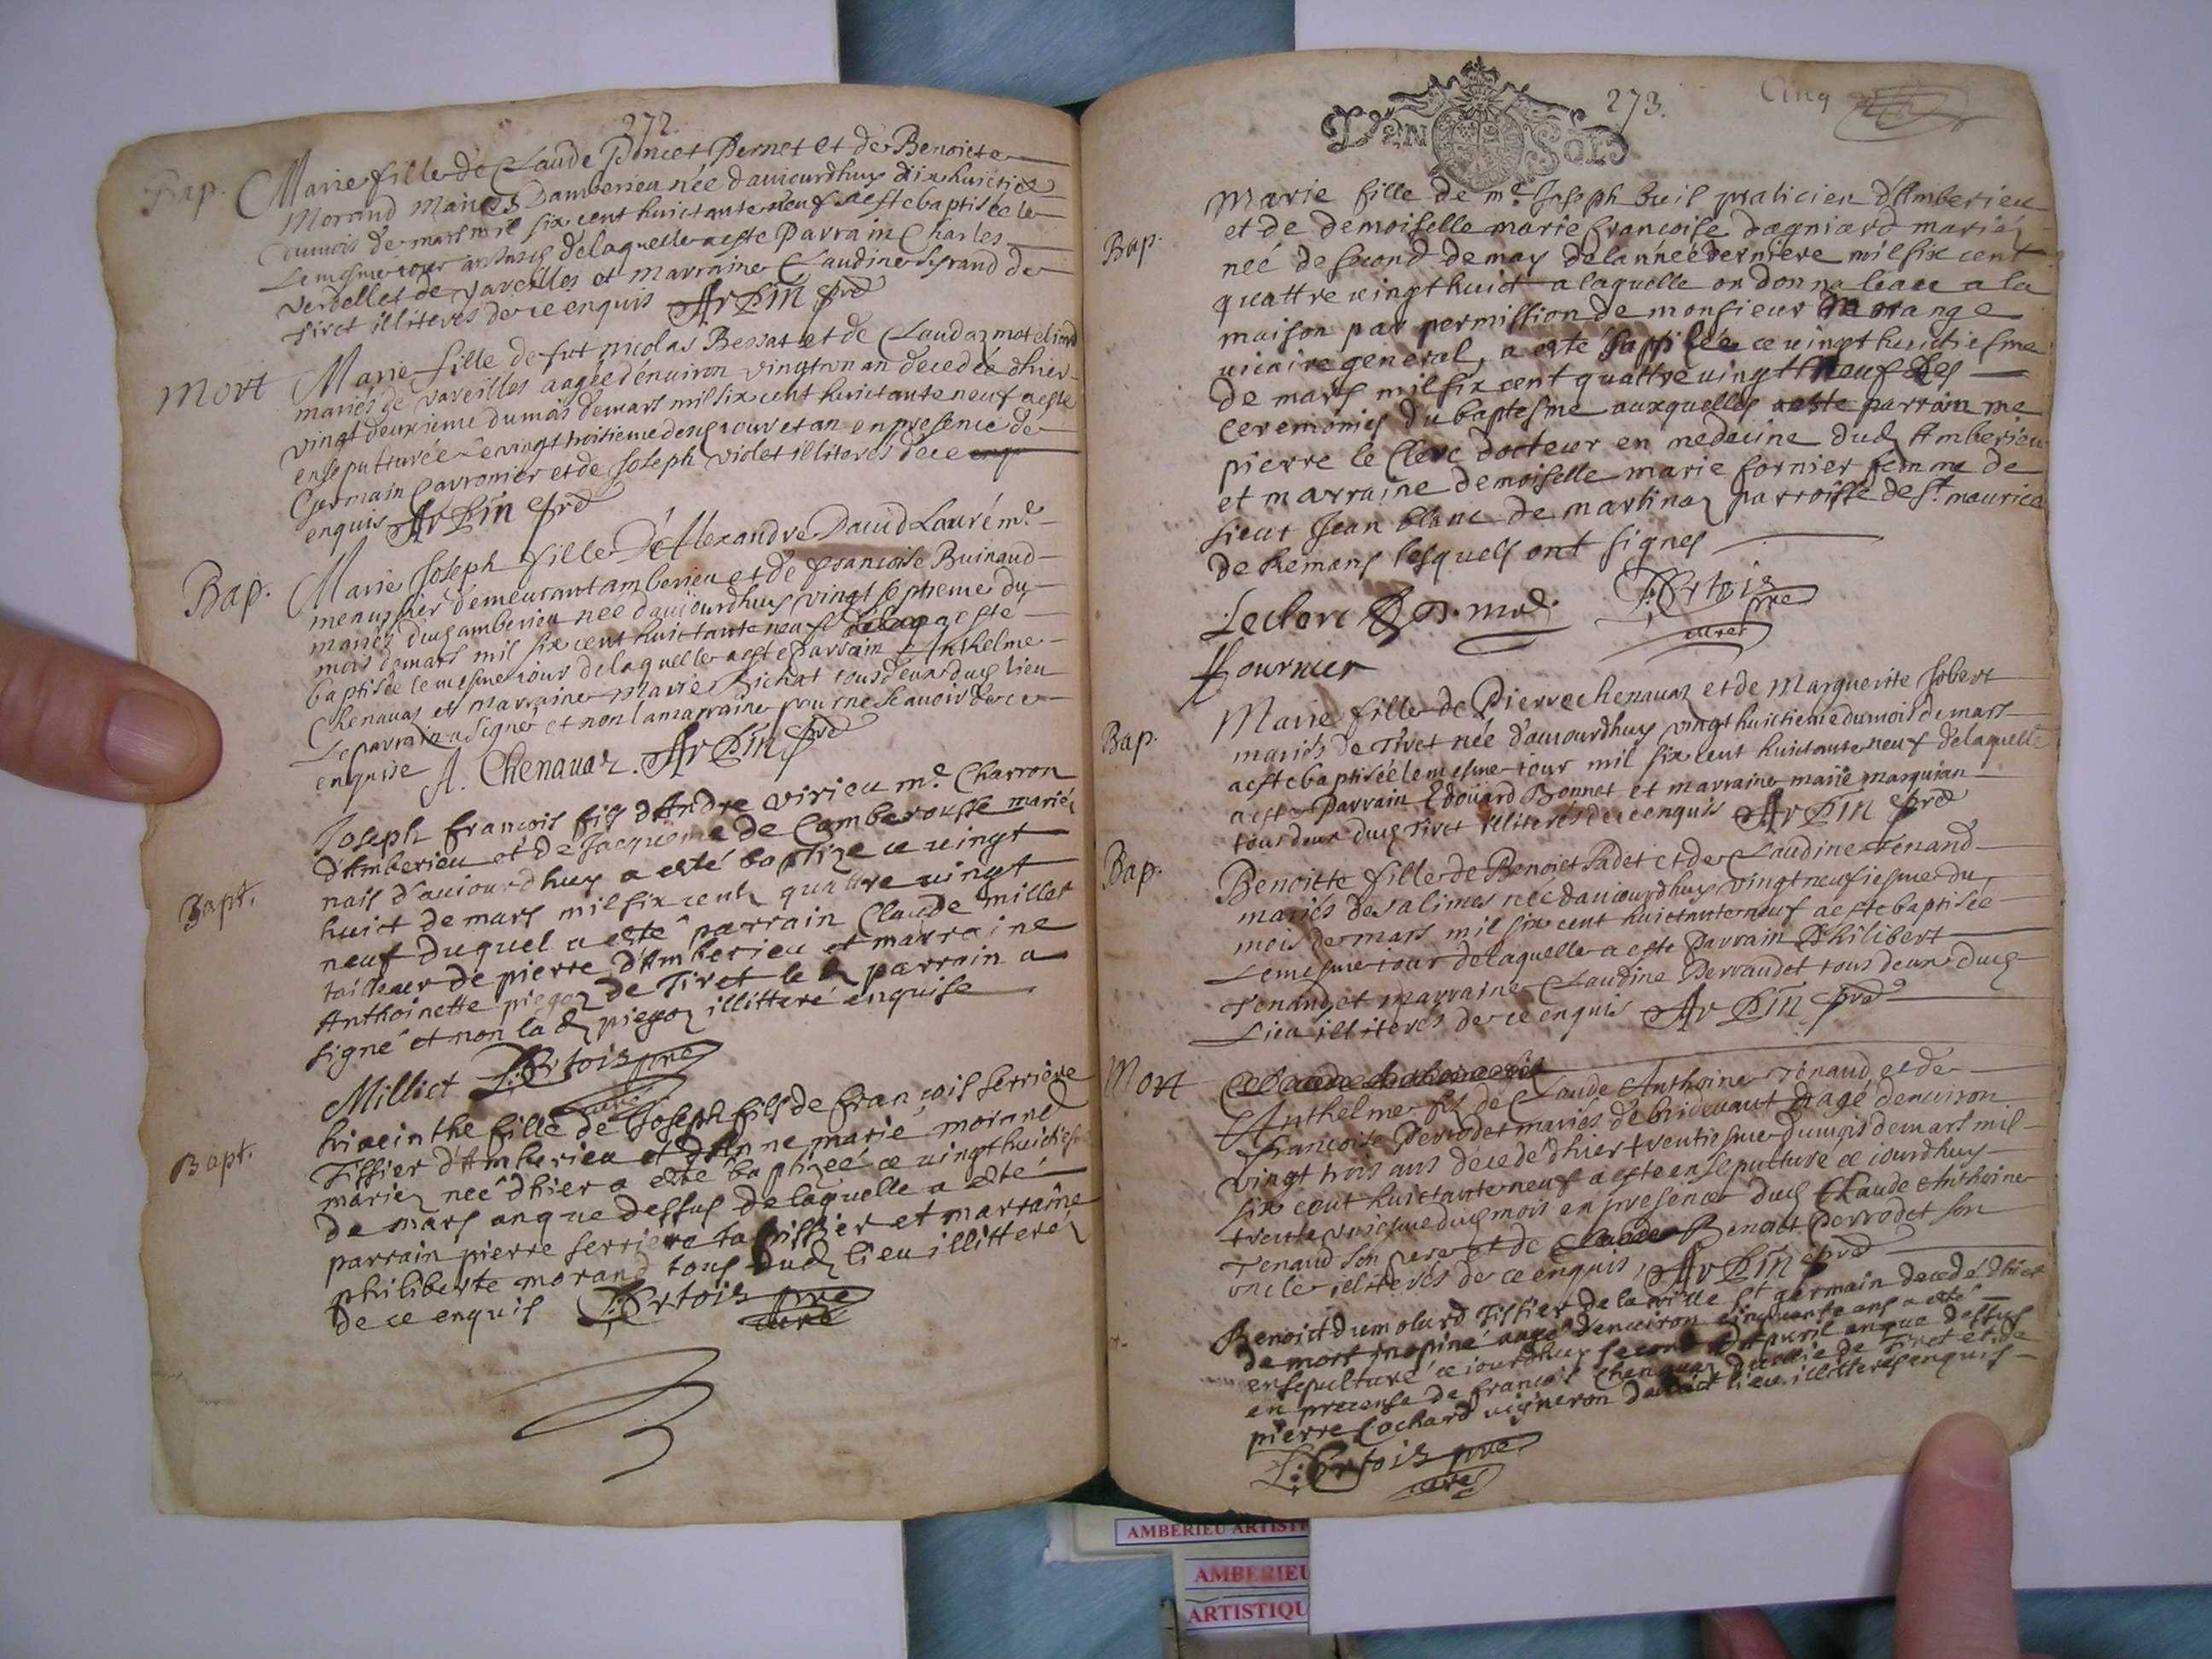 272.
Bap. Marie fille de Claude Poncet Pernet et de Benoicte
Morand mariés Damberieu née daujourdhuy dixhuictie
dumois de mars mil six cent huictante neuf aesté baptisée le
Le mesme jour delaquelle aesté Parrain Charles
Verdellet de vareilles et marraine Claudine de
Tiret illiterés de ce enquis Arpin pre
Mort Marie fille de fut nicolas Bessat et de Claudaz
mariés de vareilles aagée d'environ vingt un an decedée dhier
vingt deuxieme dumois demars mil six cent huictante neuf aesté
ensepulturée le vingt troisieme desd jour et an en presence de
Germain Carronier et de Joseph violet illiterés de ce
enquis Arpin pre
Bap. Marie Joseph fille D'Alexandre David Lauré me
menuysier demeurant amberieu et de francoise Buinand
mariés dud amberieu née daujourdhuy vingt septieme du
mois demars mil six cent huictante neuf aesté
baptisée le mesme jour delaquelle aesté Parrain Anthelme
Chenavaz et marraine Marie Bichat tous deux dud lieu
Le parrain a signé et non la marraine pour ne scavoir de ce
enquise A. Chenavaz. Arpin pre
Bapt. Joseph francois fils d'Andre virieu me Charron
d'Amberieu et de Jacqueme de Combe rousse mariéz
nais d'aujourdhuy a esté baptize ce vingt
huict de mars mil six cent quattre vingt
neuf duquel a esté parrain Claude millet
tailleur de pierre d'Amberieu et marraine
Anthoinette piegoz de Tiret le d parrain a
signé et non la d piegoz illitteré enquise
Milliet Ertois pre
curé
Bapt. hiacinthe fille de Joseph fils de francois serriere
Tissier d'Amberieu et d'Anne marie morand
mariez neé d'hier a esté baptizeé ce vingt huictiesme
de mars an que dessus de laquelle a esté
parrain pierre serriere et marraine
philiberte morand tous dud lieu illitterez
de ce enquis Ertois pre
curé
DEVX SOLS
273.
Cinq
Bap. Marie fille de me Joseph buil praticien d'Amberieu
et de demoiselle marie francoise dagniard mariéz
neé de second de may de la nneé derniere mil six cent
quattre vingt huict a laquelle on donna leau a la
maison par permission de monsieur de morange
vicaire general, a esté baptisée ce vingt huictiesme
de mars mil six cent quattre vingt neuf Les
ceremonies du baptesme auxquelles aesté parrain me
pierre le Clerc docteur en medecine dud Amberieu
et marraine demoiselle marie fornier femme de
sieur Jean blanc de martinaz parroisse de st maurice
de Remans lesquels ont signes
Leclerc D. med. Ertois pre
curé
Fournier
Bap. Marie fille de Pierre chenavaz et de Marguerite Jobert
mariés de Tiret née daujourdhuy vingt huictieme dumois de mars
aesté baptisée le mesme jour mil six cent huictante neuf delaquelle
aesté Parrain Edouard Bonnet et marraine marie marquian
tous deux dud Tiret illiterés de ce enquis Arpin pre
Bap. Benoitte fille de Benoict Padet et de Claudine Tenand
mariés de salimes née daujourdhuy vingt neufiesme du
mois de mars mil six cent huictante neuf aesté baptisée
Le mesme jour delaquelle a esté Parrain Philibert
Tenand et marraine Claudine Perraudet tous deux dud
Lieu illiterés de ce enquis Arpin pre
Mort
Anthelme fils de Claude Anthoine Tenaud et de
francoise Perrodet mariés de bridevant aagé denviron
vingt trois ans decedé d'hier trentiesme dumois de mars mil
six cent huictante neuf a esté ensepulturé ce jourdhuy
trente uniesme dud mois en presence dud Claude Anthoine
Tenaud son pere et de Benoict Perrodet son
oncle illiterés de ce enquis Arpin pre
Benoict dumolard Tissier de la ville st germain decedé d'hier
de mort inopiné aagé denviron cinquante ans a esté
ensepulturé ce jourdhuy second d'apvril an que dessus
en presense de francois Chenavaz de Tiret et de
pierre Cochard vigneron dudict lieu illitteres enquis
Ertois pre
curé
AMBERIEU ARTISTI
AMBERIEU
ARTISTIQU